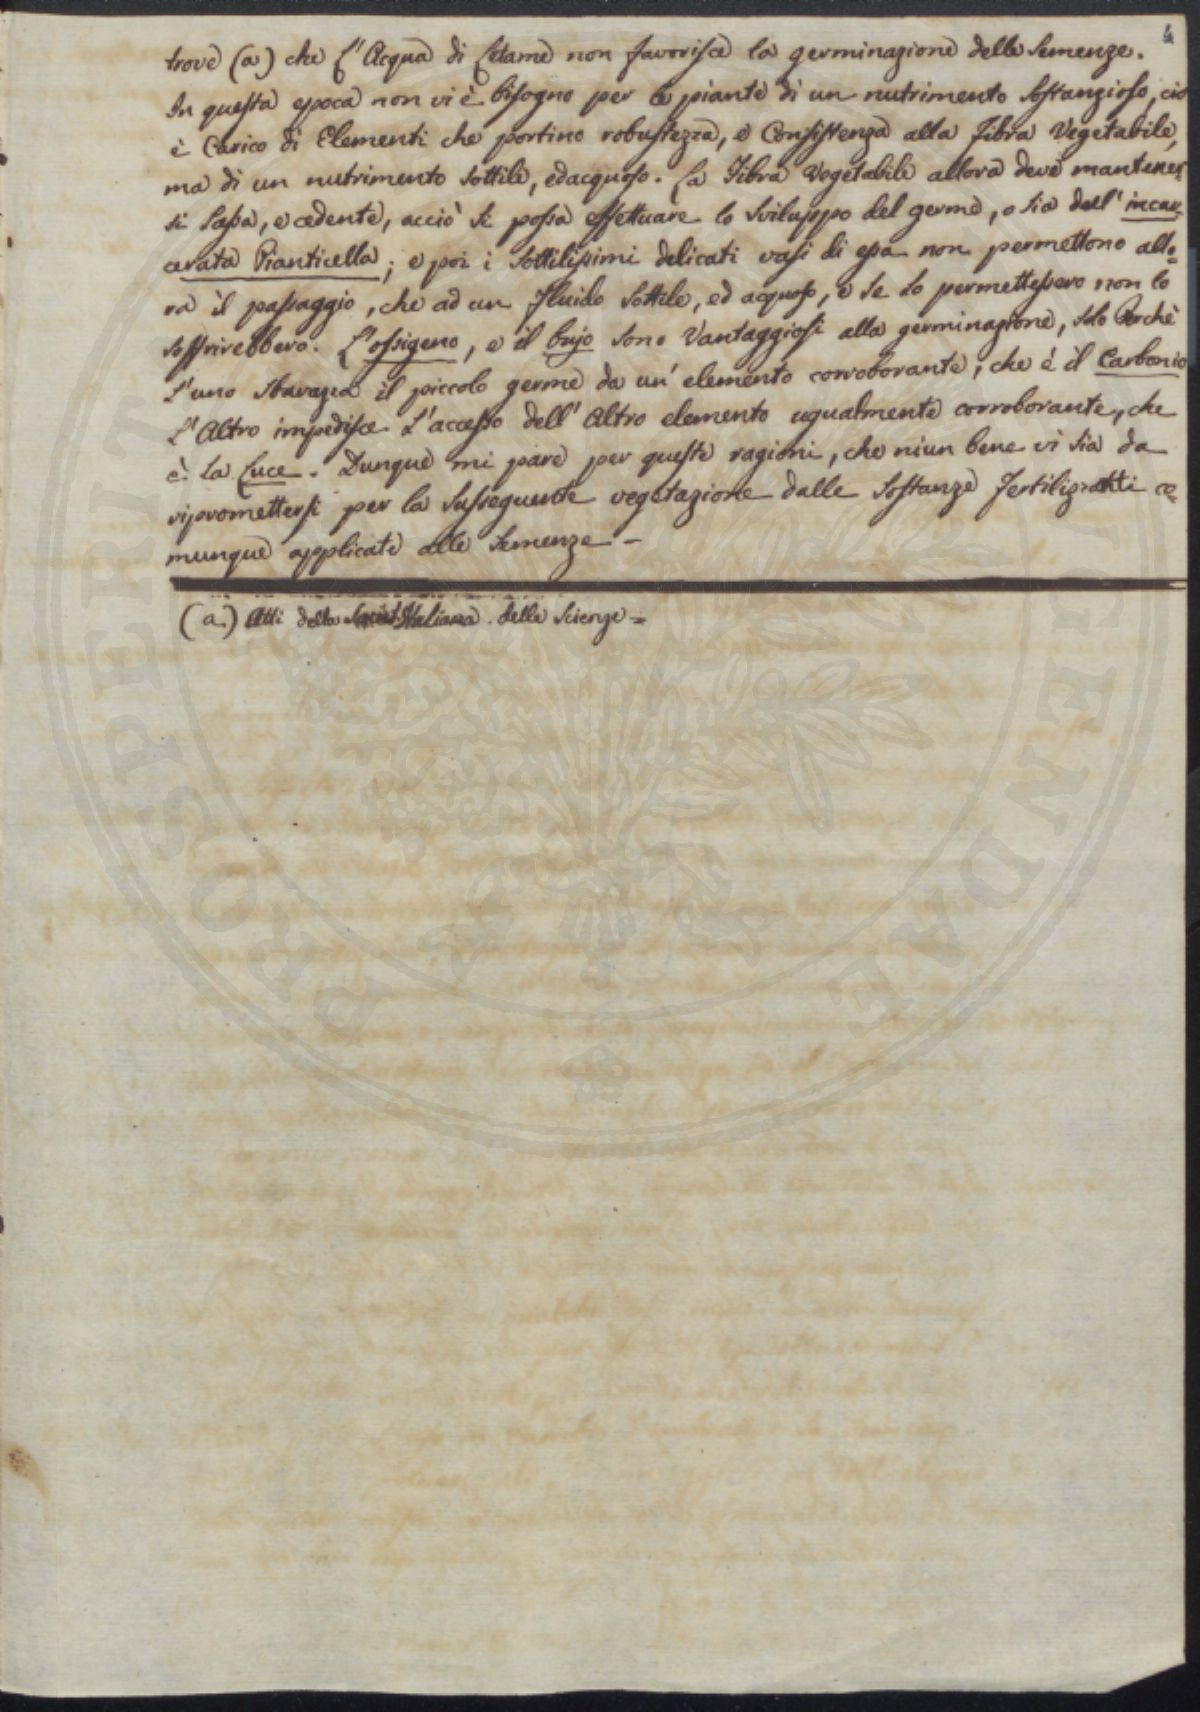 4
trovò (a) che l'Acqua di Letame non favorisce la germinazione delle Semenze.
In questa epoca non vi è bisogno per le piante di un nutrimento sostanzioso, cio
è Carico di Elementi che portino robustezza, e Consistenza alla Fibra Vegetabile,
ma di un nutrimento sottile, ed acquoso. La Fibra Vegetabile allora deve mantener-
si lassa, e cedente, acciò si possa effettuare lo sviluppo del germe, o sia dell' incar
cerata Pianticella; e poi i sottilissimi delicati vasi di essa non permettono allo=
ra il passaggio, che ad un Fluido sottile, ed acquoso, e se lo permettessero non lo
soffrirebbero. L'ossigeno, e il bujo sono Vantaggiosi alla germinazione, solo Perchè
l'uno sbarazza il piccolo germe da un' elemento corroborante, che è il Carbonio
l'Altro impedisce l'accesso dell' Altro elemento ugualmente corroborante, che
è la Luce. Dunque mi pare per queste ragioni, che niun bene vi sia da
ripromettersi per la susseguente vegetazione dalle Sostanze Fertilizzanti co=
munque applicate alle Semenze –
(a) Atti della Società Italiana delle Scienze =
PROSPERITATI AUGENDAE